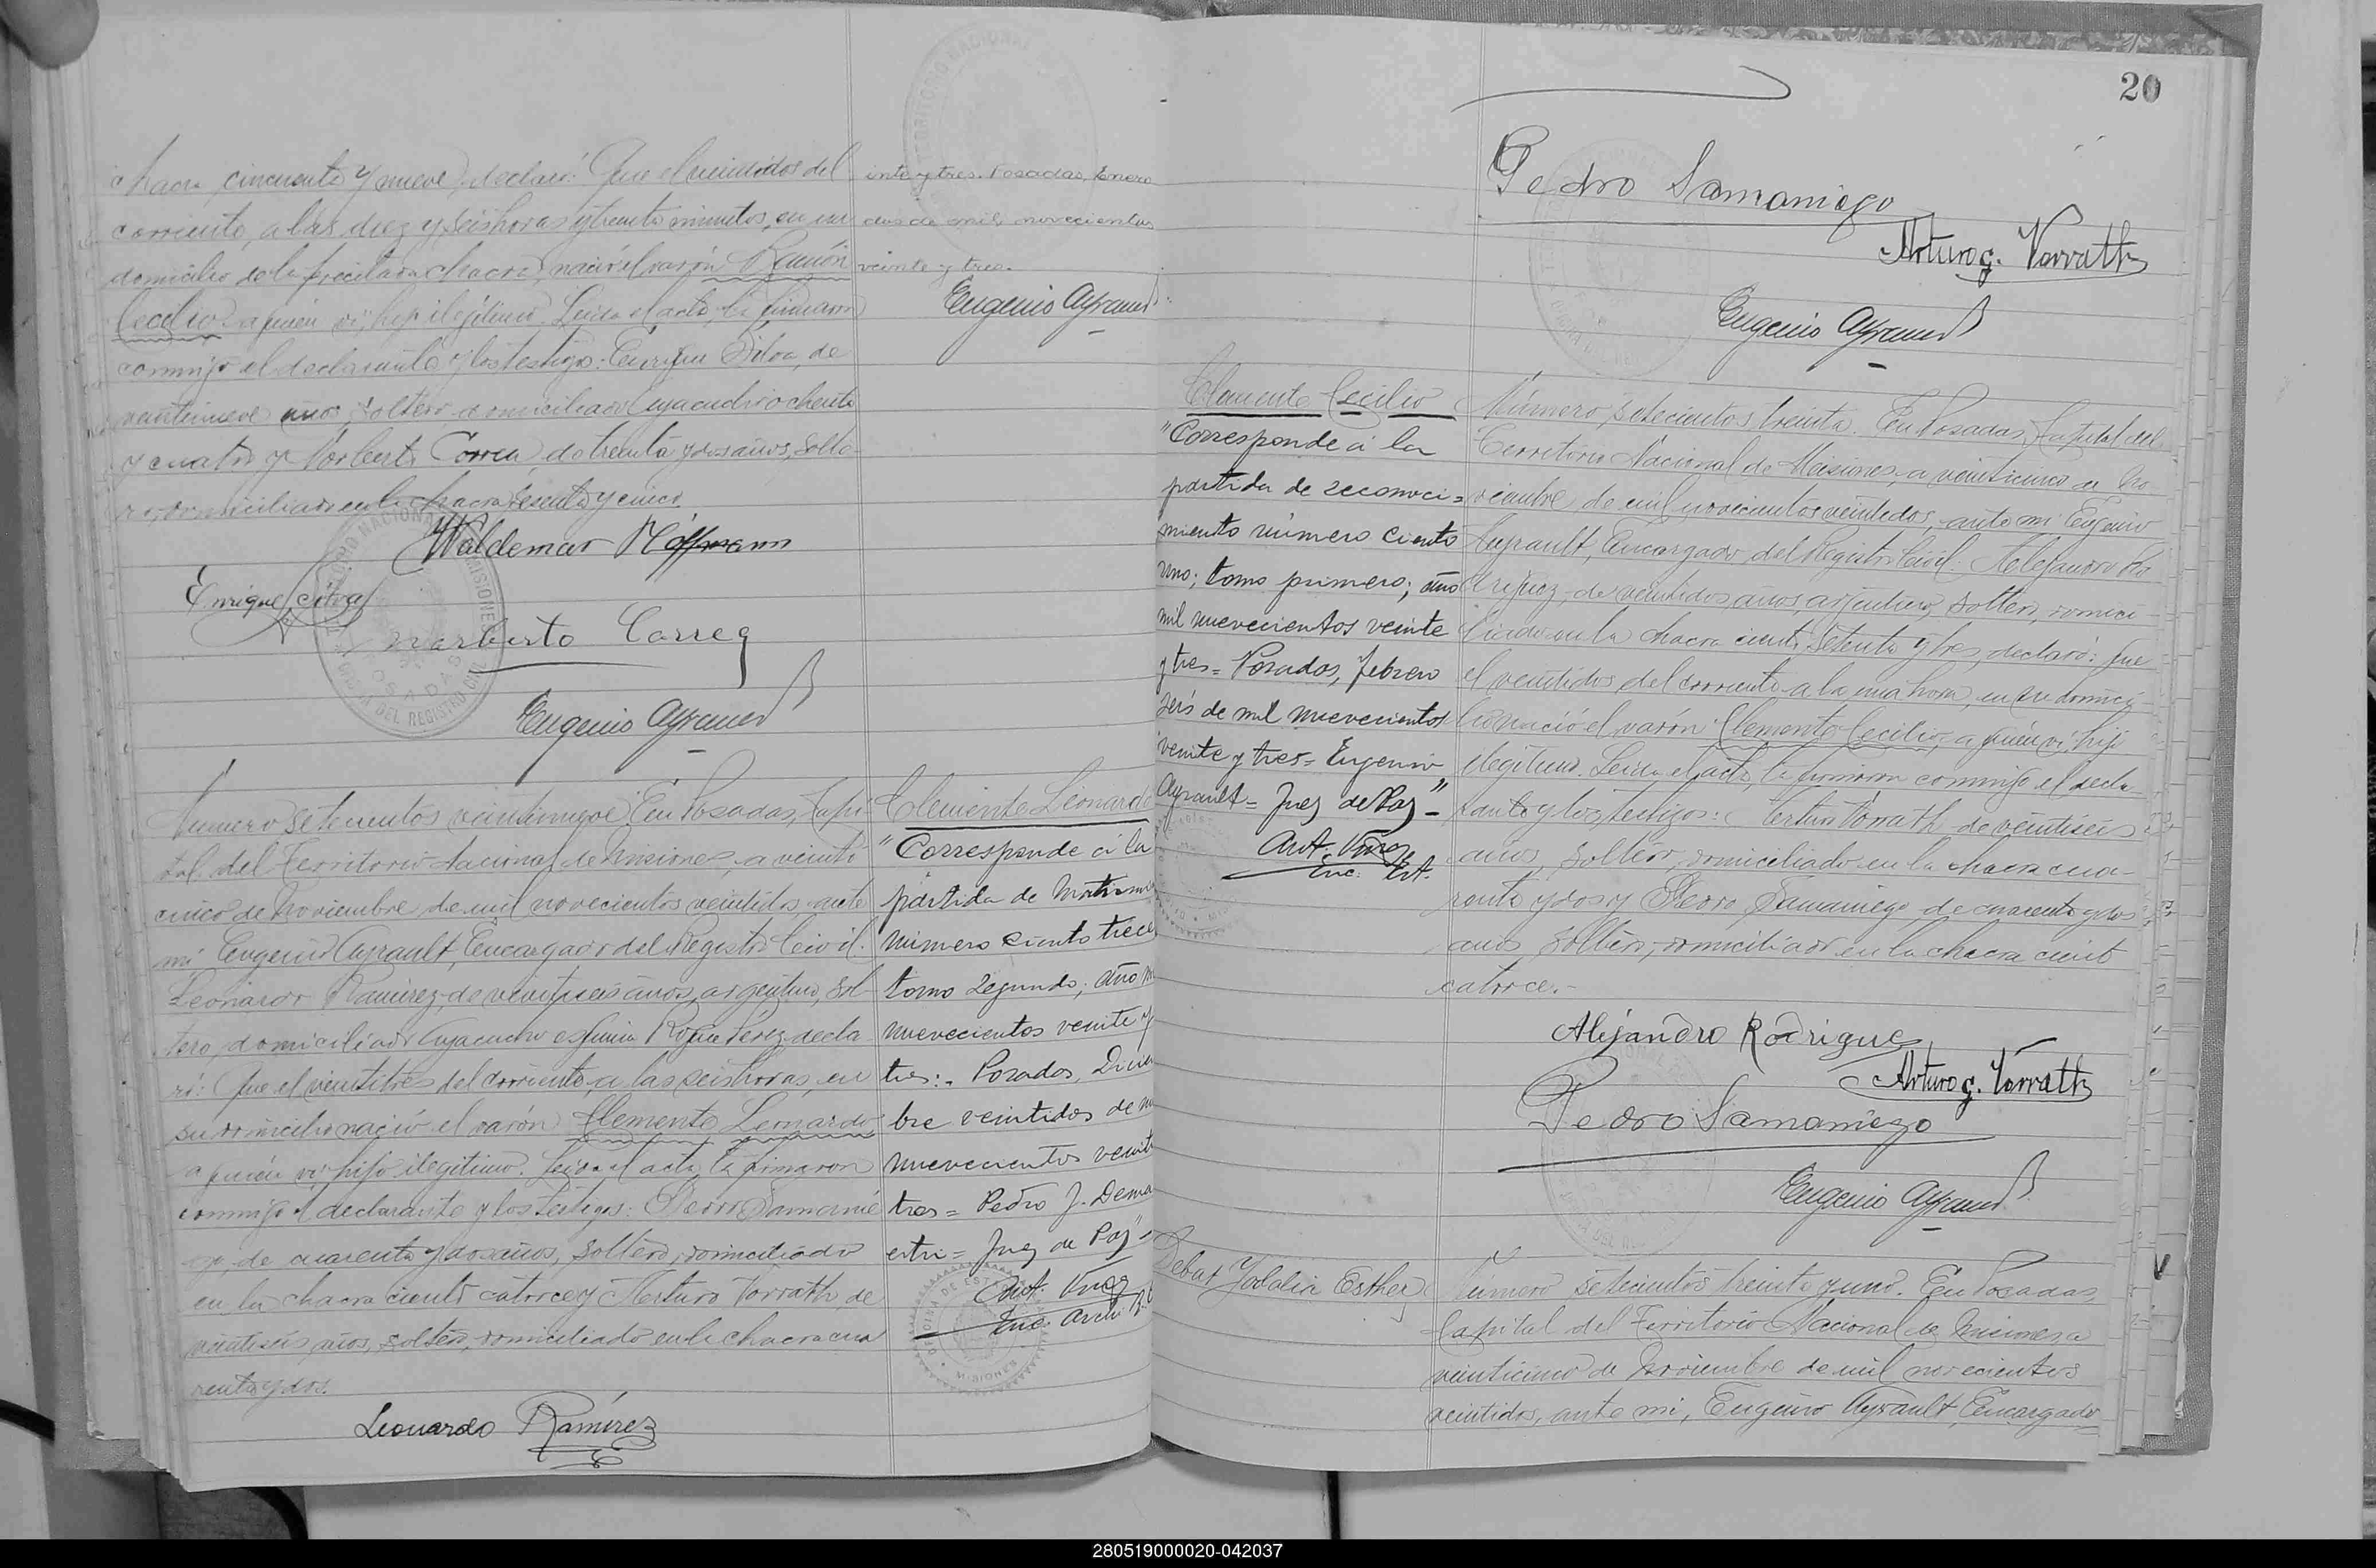 chacra cincuenta y nueve, declaró: Que el veintidos del
corriente, a las diez y seis horas y treinta minutos, en su
domicilio de la precitada chacra, nació el varón Ramón
Cecilio a quien vi, hijo ilegítimo. Leida el acta, la firmaron
conmigo el declarante y los testigos: Enrique Silva, de
veintinueve años, soltero, domiciliado Ayacucho ochenta
y cuatro y Norberto Correa, de treinta y dos años, solte-
ro, domiciliado en la chacra setenta y cinco.
Waldemar Hoffmann
Enrique Silva
Norberto Correa
Eugenio Ayrault
inte y tres. Posadas, Enero
dos de mil novecientos
veinte y tres.
Eugenio Ayrault
Numero setecientos veintinueve. En Posadas, Capi-
tal del Territorio Nacional de Misiones, a veinti
cinco de Noviembre de mil novecientos veintidos, ante
mi Eugenio Ayrault, Encargado del Registro Civil:
Leonardo Ramirez, de veintiseis años, argentino, sol-
tero, domiciliado Ayacucho esquina Roque Perez, decla-
ró: Que el veintitres del corriente, a las seis horas, en
su domicilio nació el varón Clemente Leonardo
a quien vi, hijo ilegitimo. Leida el acta, la firmaron
conmigo el declarante y los testigos: Pedro Samanie
go, de cuarenta y dos años, soltero, domiciliado
en la chacra ciento catorce y Arturo Vorrath de
veintiseis años, soltero, domiciliado en la chacra cua
renta y dos.
Leonardo Ramírez
Clemente Leonardo
"Corresponde á la
partida de Matrimo
número ciento trece
tomo segundo; año m
nuevecientos veinte y
tres:- Posadas, Diciem
bre veintidos de m
nuevecientos veinte
tres = Pedro J. Dema
estri = Juez de Paz"=
20
Pedro Samaniego
Arturo G. Vorrath
Eugenio Ayrault
Clemente Cecilio
"Corresponde á la
partida de reconoci=
miento número ciento
uno; tomo primero; año
mil nuevecientos veinte
y tres = Posadas, febrero
seis de mil nuevecientos
veinte y tres = Eugenio
Ayrault = Juez de Paz"=
Número setecientos treinta. En Posadas, Capital del
Territorio Nacional de Misiones, a veinticinco de No-
viembre de mil novecientos veintidos, ante mi Eugenio
Ayrault, Encargado del Registro Civil: Alejandro Ro
driguez, de veintidos años, argentino, soltero, domici-
liado en la chacra ciento setenta y tres, declaró: que
el veintidos del corriente a la una hora, en su domici-
lio nació el varón Clemente Cecilio, a quien vi, hijo
ilegitimo. Leida el acta, la firmaron conmigo el decla
rante y los testigos: Arturo Vorrath de veintiseis
años, soltero, domiciliado en la chacra cua-
renta y dos y Pedro Samaniego, de cuarenta y dos
años, soltero, domiciliado en la chacra ciento
catorce.-
Alejandro Rodrigues
Arturo G. Vorrath
Pedro Samaniego
Eugenio Ayrault
Esther
Número setecientos treinta y uno. En Posadas,
Capital del Territorio Nacional de Misiones, a
veinticinco de Noviembre de mil novecientos
veintidos, ante mi, Eugenio Ayrault, Encargado
280519000020-042037